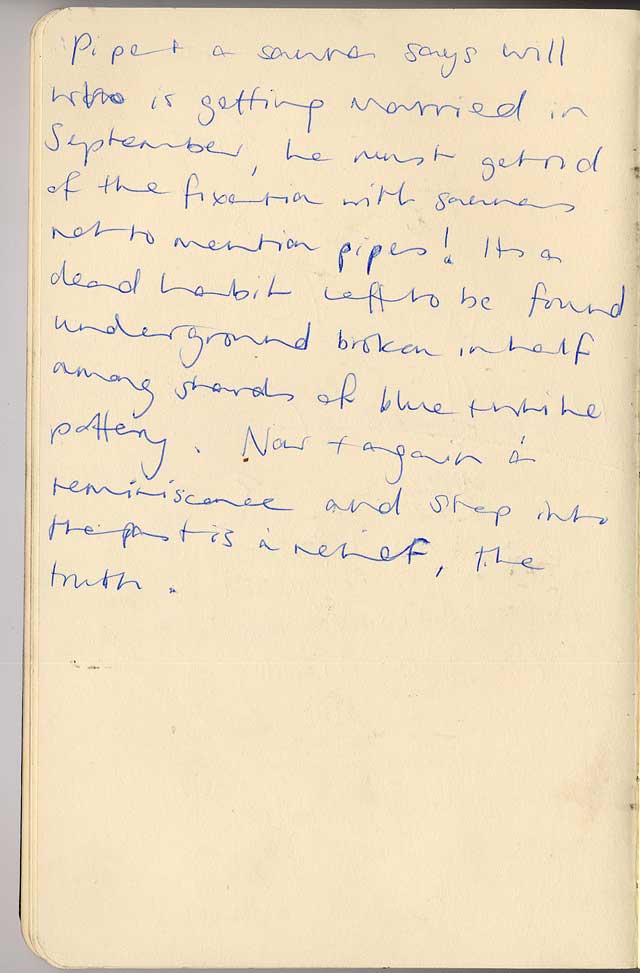 Pipe + a sauna says will
who is getting married in
September, he must get rid
of the fixation with saunas
not to mention pipes! Its a
dead habit left to be found
underground broken in half
among shards of blue + white
pottery. Now + again a
reminiscence and step into
the past is a relief, the
truth.